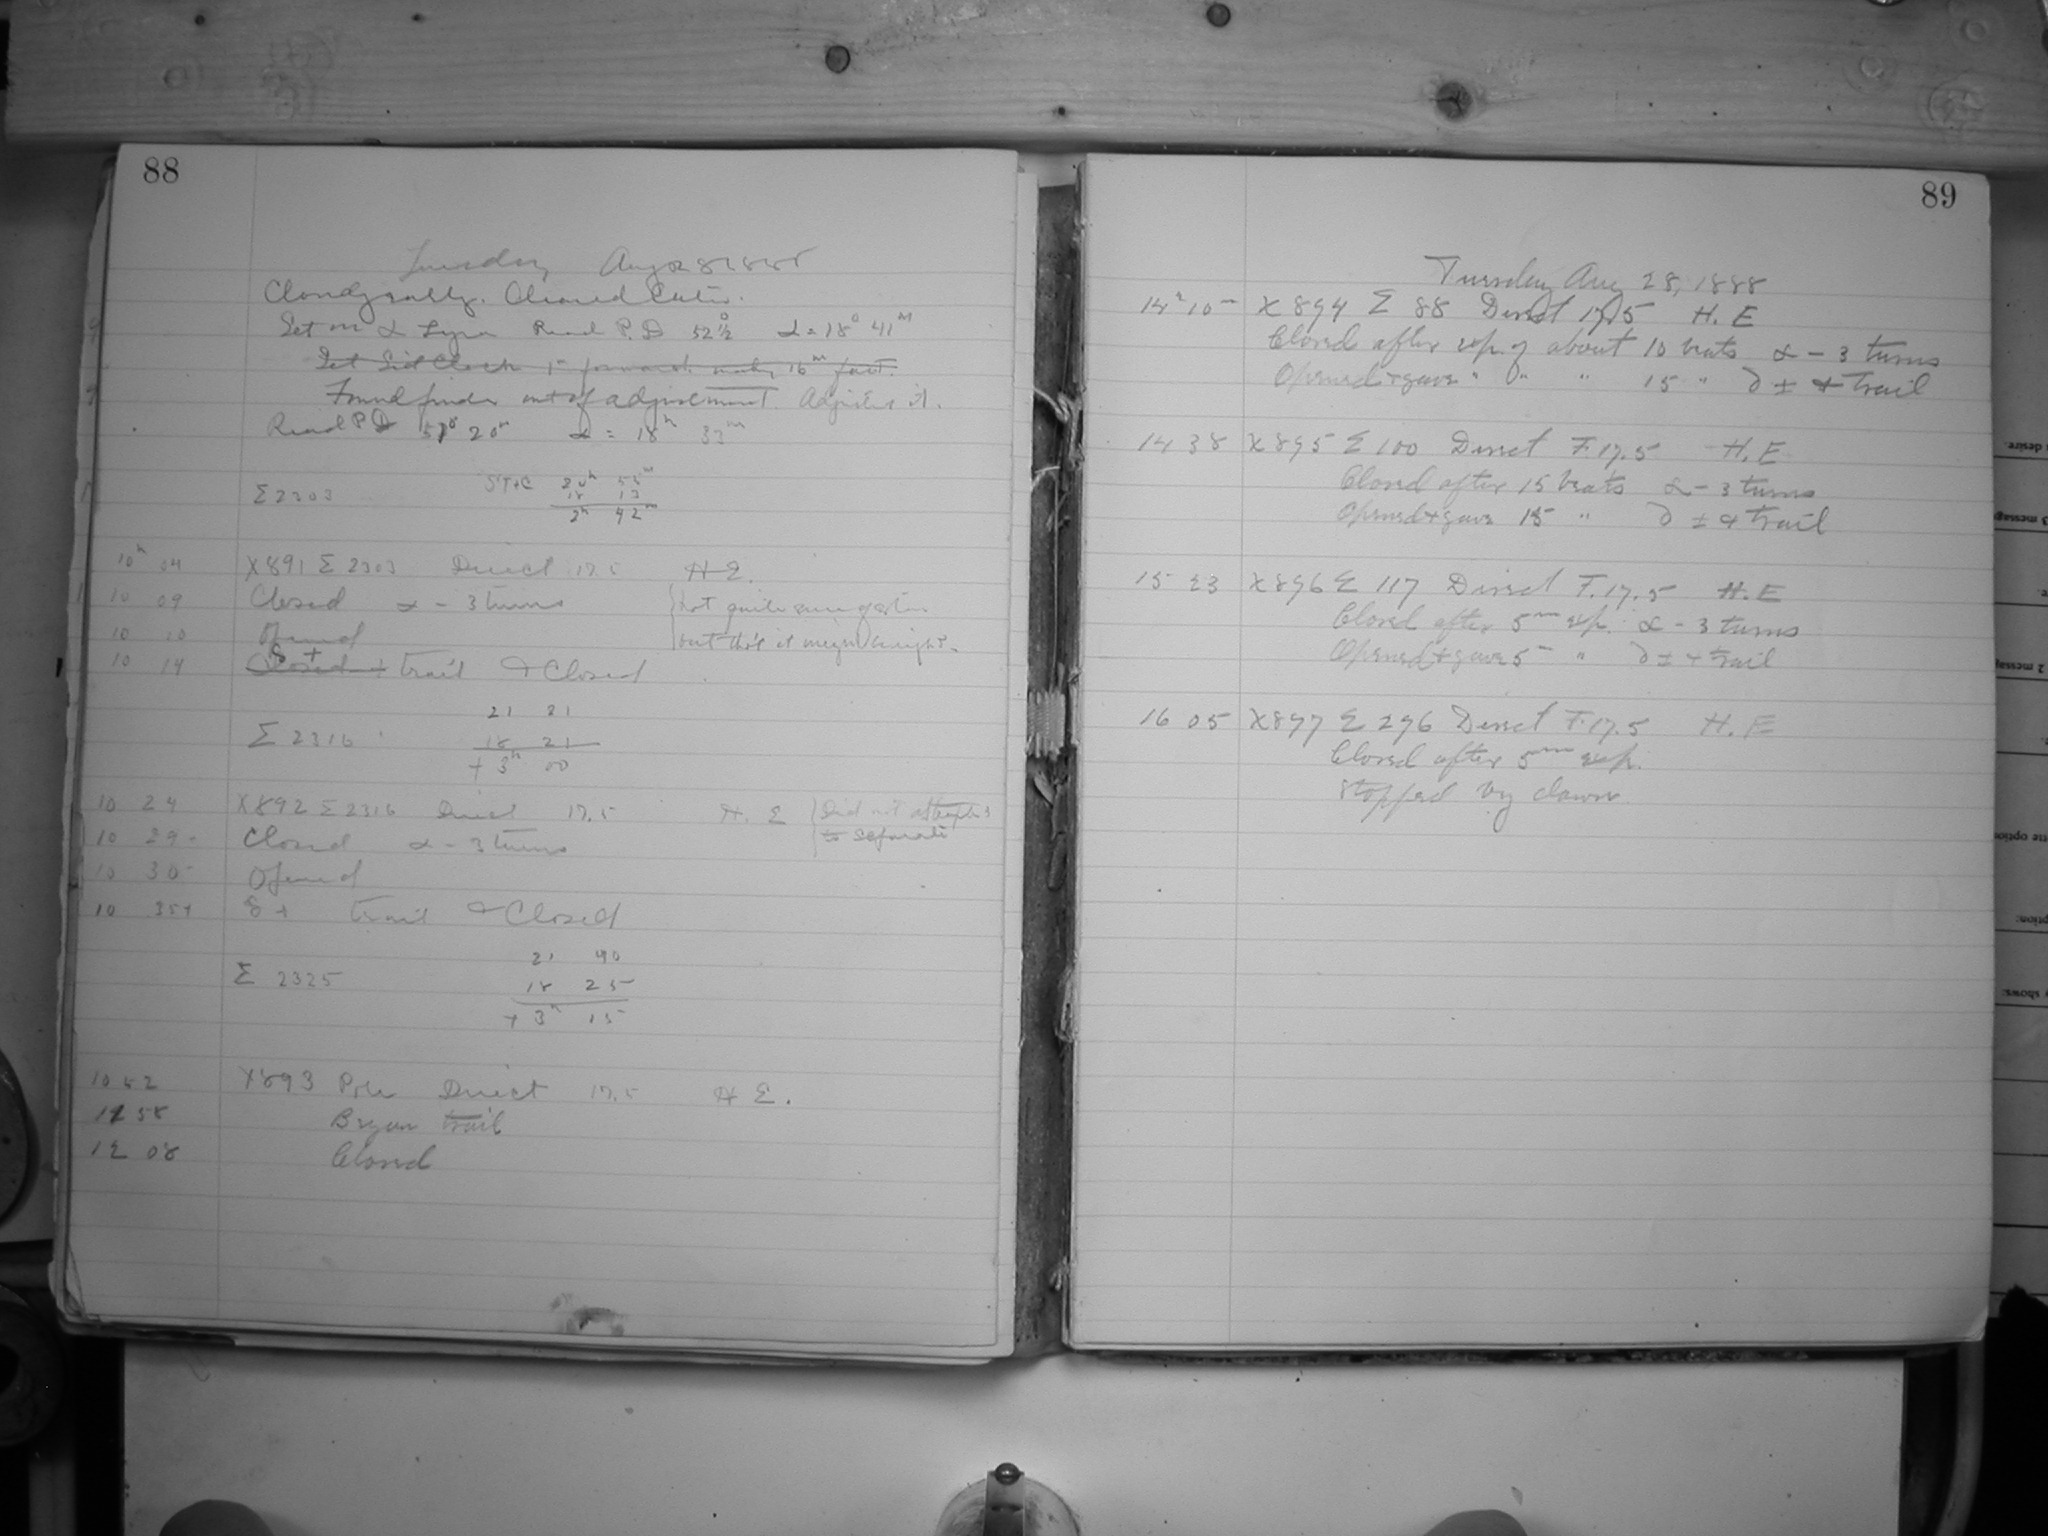 88
Tuesday Aug 28 1888
Cloudy early. Cleared later.
Set on α Lyra Read P.D 52½° α = 18° 41m
Set Sid Clock 1- forward making 16m fast.
Found finder out of adjustment. Adjusted it.
Read P D 51° 20m α = 18h 33m
Σ 2303 ST+C 20h 55m
18 13
2h 42m
10h 04 X891 Σ 2303 Direct 17.5 H E.
10 09 Closed α - 3 turns { Not quite sure of star
10 10 Opened but this it might be right.
10 14 Closed + δ + trail & Closed
Σ 2316 21 21
18 21
+ 3h 00
10 24 X892 Σ 2316 Direct 17.5 H. E { Did not attempt
10 29- Closed α - 3 turns to separate
10 30- Opened
10 35+ δ + trail & Closed
Σ 2325 21 40
18 25
+ 3h 15
10 52 X893 Pole Direct 17.5 H E.
11 58 Began trail
12 08 Closed
89
Tuesday Aug 28, 1888
14h 10- X894 Σ 88 Direct 17.5 H. E
Closed after exp. of about 10 beats α - 3 turns
Opened + gave " " " 15 " δ ± + trail
14 38 X895 Σ 100 Direct F. 17.5 H. E
Closed after 15 beats α - 3 turns
Opened + gave 15 " δ ± + trail
15 23 X896 Σ 117 Direct F. 17.5 H. E
Closed after 5m exp. α - 3 turns
Opened + gave 5m " δ ± + trail
16 05 X897 Σ 296 Direct F. 17.5 H. E
Closed after 5m exp.
Stopped by dawn